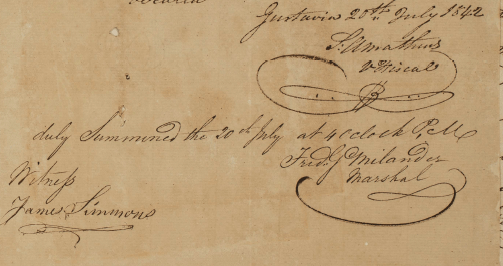 Gustavia 20th July 1842
S. A Mathews
v Fiscal
duly Summoned the 20th July at 4 oclock P.M
Fred. G Milander
Marshal
Witness
James Simmons